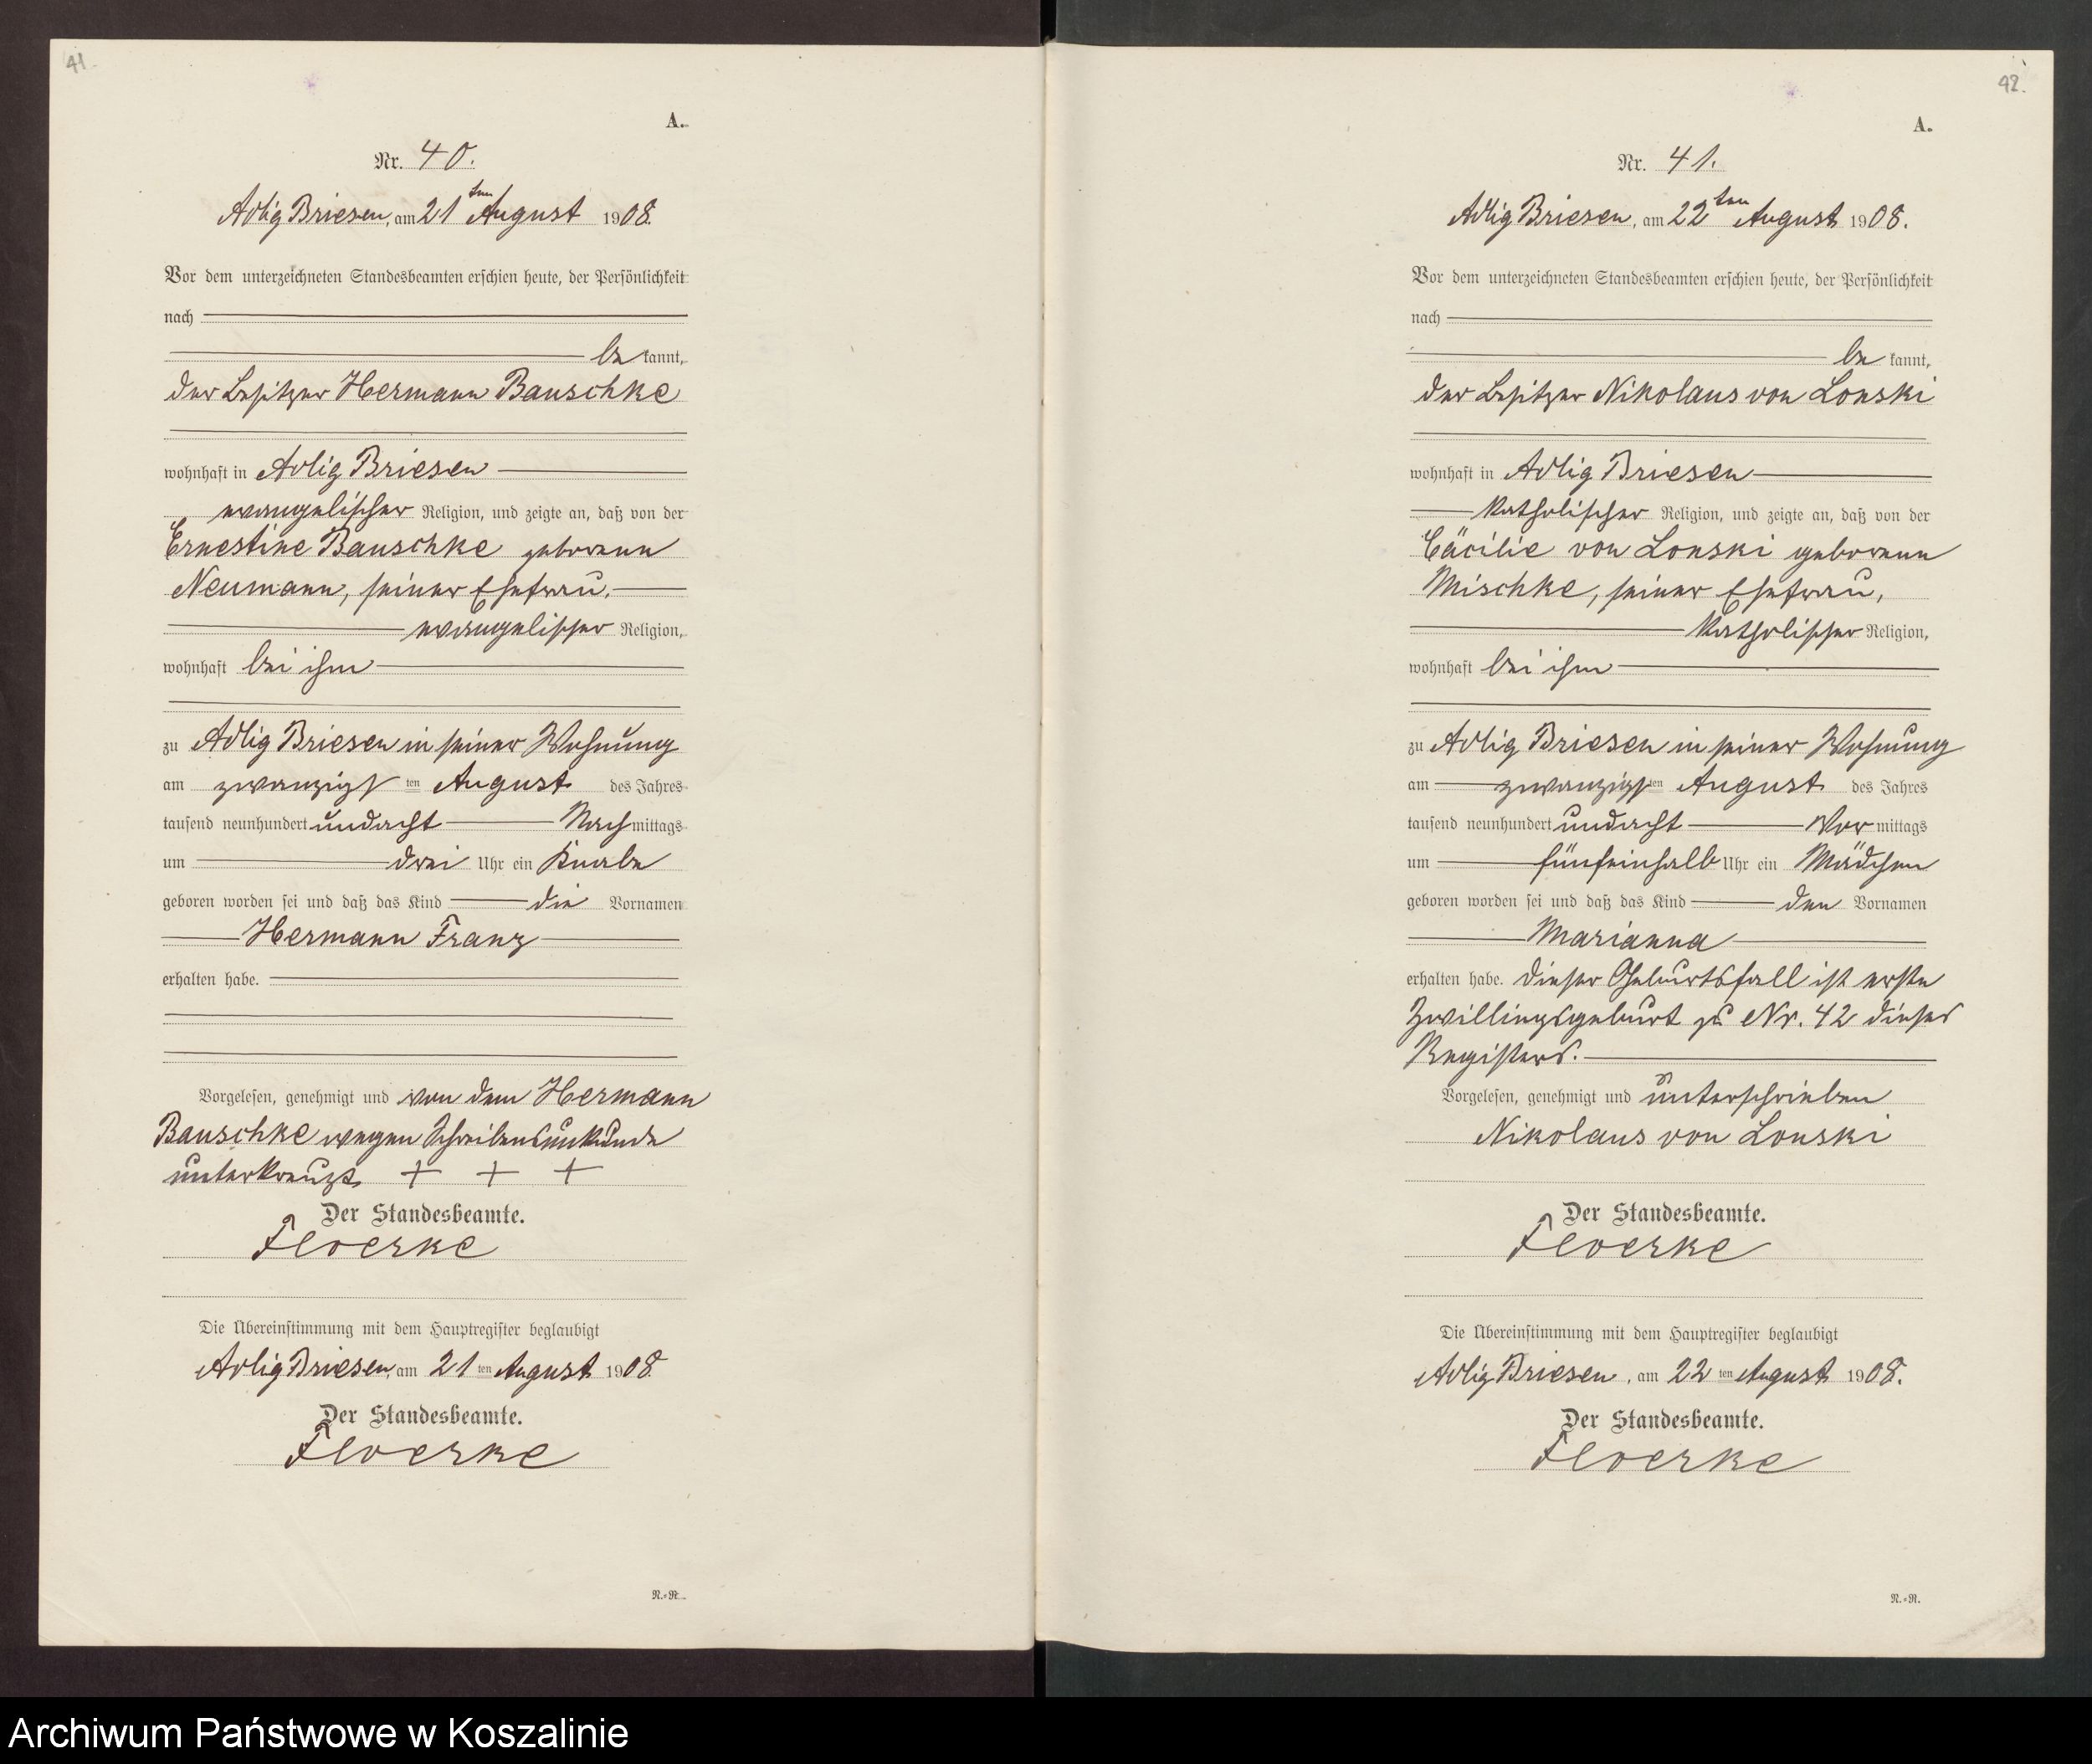 41.
A.
Nr. 40.
Adlig Briesen, am 21ten August 1908.
Vor dem unterzeichneten Standesbeamten erschien heute, der Persönlichkeit
nach
be kannt,
der Besitzer Hermann Bauschke
wohnhaft in Adlig Briesen
evangelischer Religion, und zeigte an, daß von der
Ernestine Bauschke geborenen
Neumann, seiner Ehefrau,
evangelischer Religion,
wohnhaft bei ihm
zu Adlig Briesen in seiner Wohnung
am zwanzigsten August des Jahres
tausend neunhundert undacht Nachmittags
um drei Uhr ein Knabe
geboren worden sei und daß das Kind die Vornamen
Hermann Franz
erhalten habe.
Vorgelesen, genehmigt und von dem Hermann
Bauschke wegen Schreibensunkunde
unterkreuzt + + +
Der Standesbeamte.
Floerke
Die Übereinstimmung mit dem Hauptregister beglaubigt
Adlig Briesen, am 21ten August 1908.
Der Standesbeamte.
Floerke
N.=R.
42.
A.
Nr. 41.
Adlig Briesen, am 22ten August 1908.
Vor dem unterzeichneten Standesbeamten erschien heute, der Persönlichkeit
nach
be kannt,
der Besitzer Nikolaus von Lonski
wohnhaft in Adlig Briesen
katholischer Religion, und zeigte an, daß von der
Cäcilie von Lonski geborenen
Mischke, seiner Ehefrau,
katholischer Religion,
wohnhaft bei ihm
zu Adlig Briesen in seiner Wohnung
am zwanzigsten August des Jahres
tausend neunhundert undacht Vormittags
um fünfeinhalb Uhr ein Mädchen
geboren worden sei und daß das Kind den Vornamen
Marianna
erhalten habe. Dieser Geburtsfall ist erste
Zwillingsgeburt zu Nr. 42 dieses
Registers.
Vorgelesen, genehmigt und unterschrieben
Nikolaus von Lonski
Der Standesbeamte.
Floerke
Die Übereinstimmung mit dem Hauptregister beglaubigt
Adlig Briesen, am 22ten August 1908.
Der Standesbeamte.
Floerke
N.=R.
Archiwum Państwowe w Koszalinie